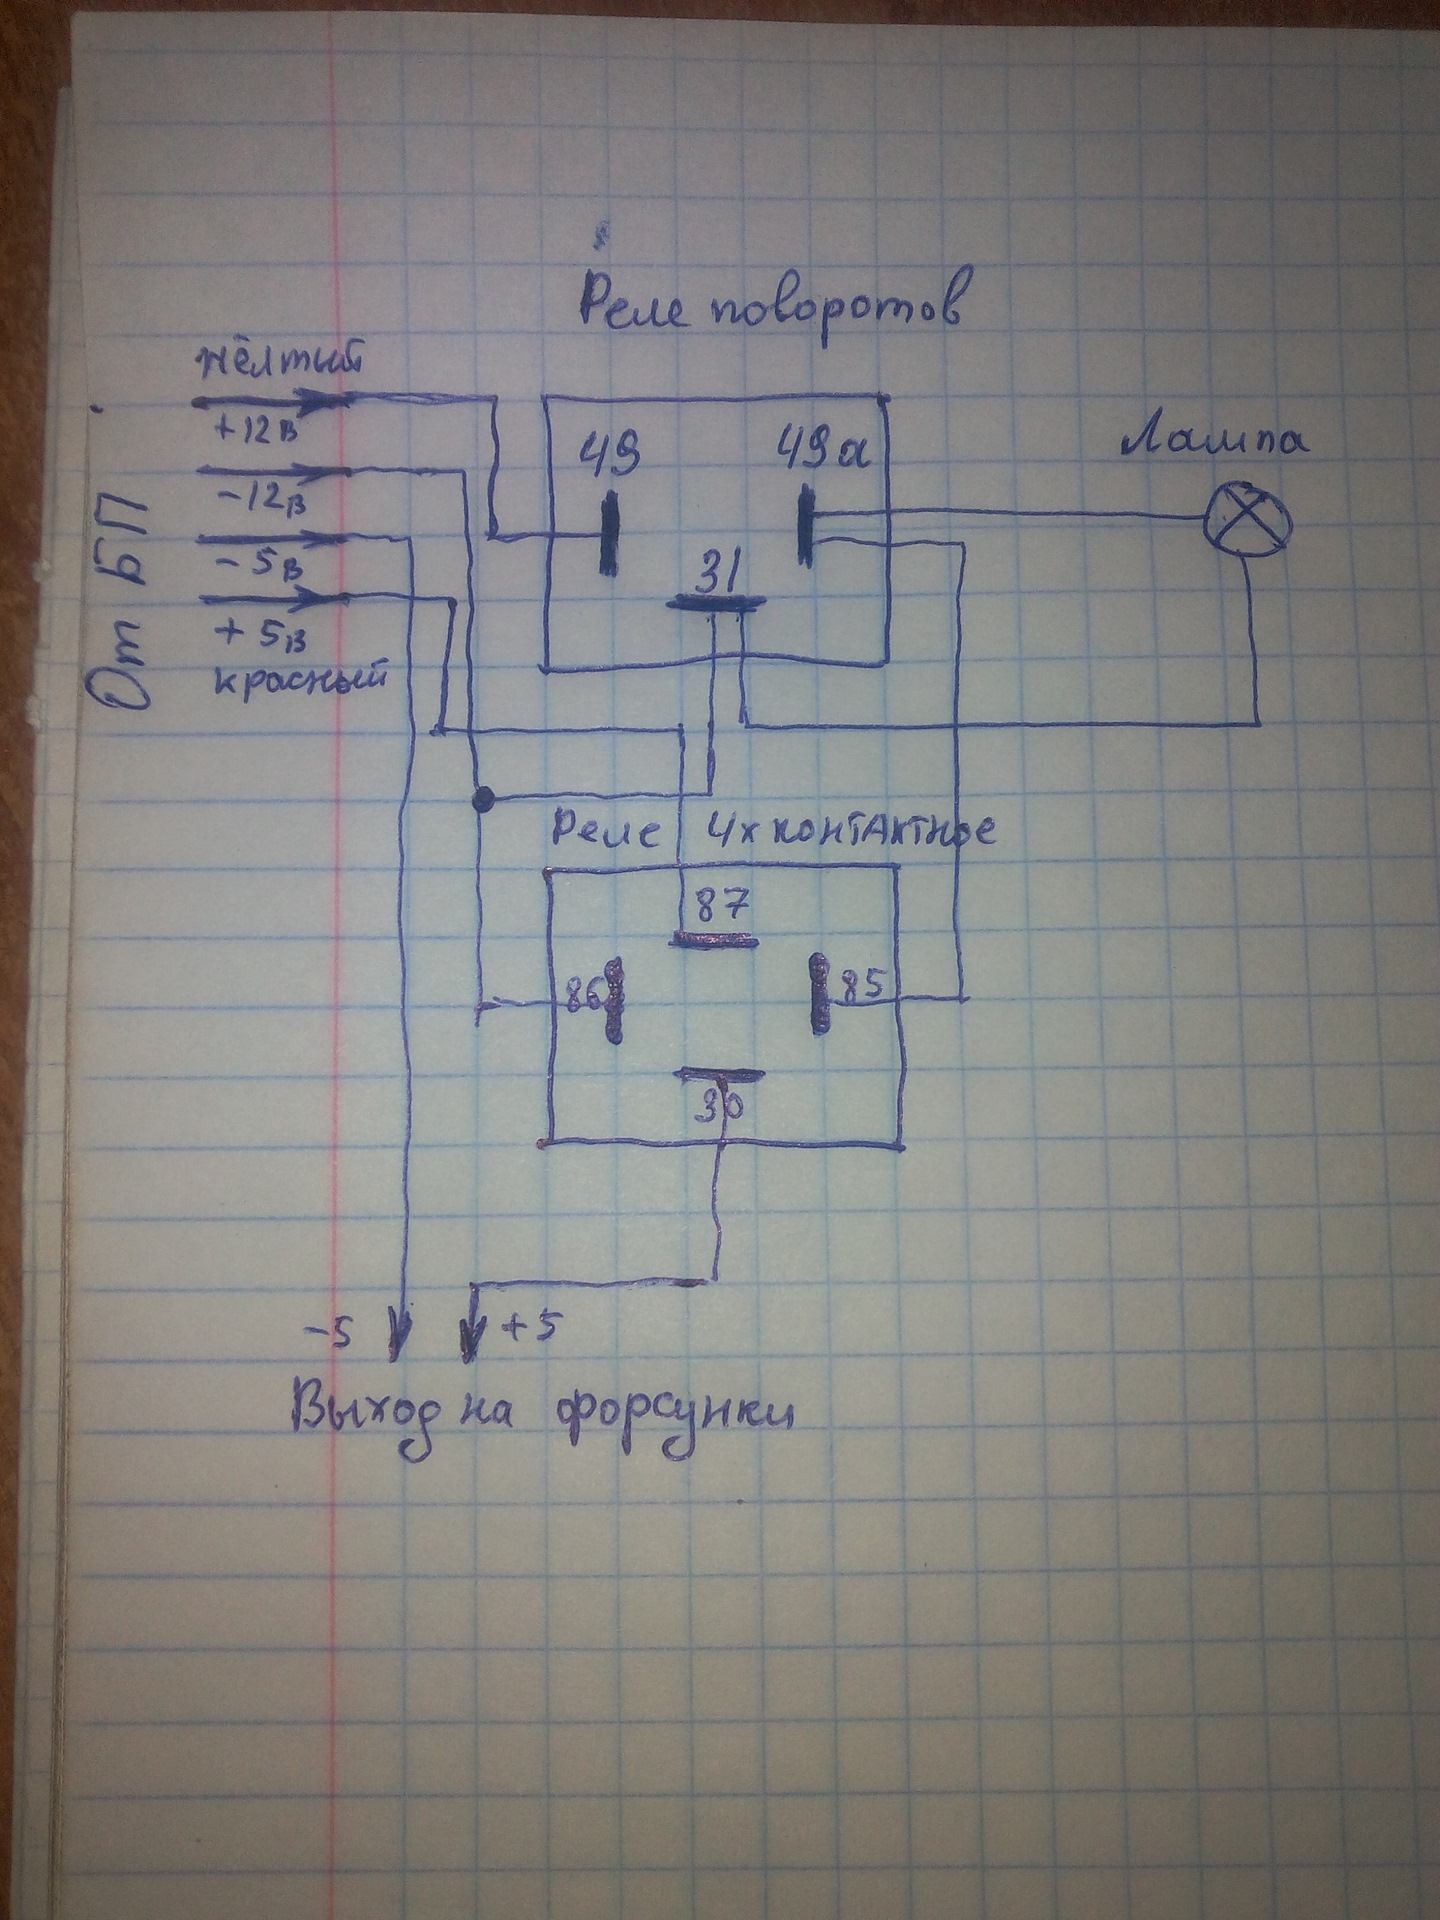 Реле поворотов
жёлтый
+12в
-12в
-5в
+5в
красный
От БП
49
49а
31
Лампа
Реле 4х контактное
87
86
85
30
-5
+5
Выход на форсунки